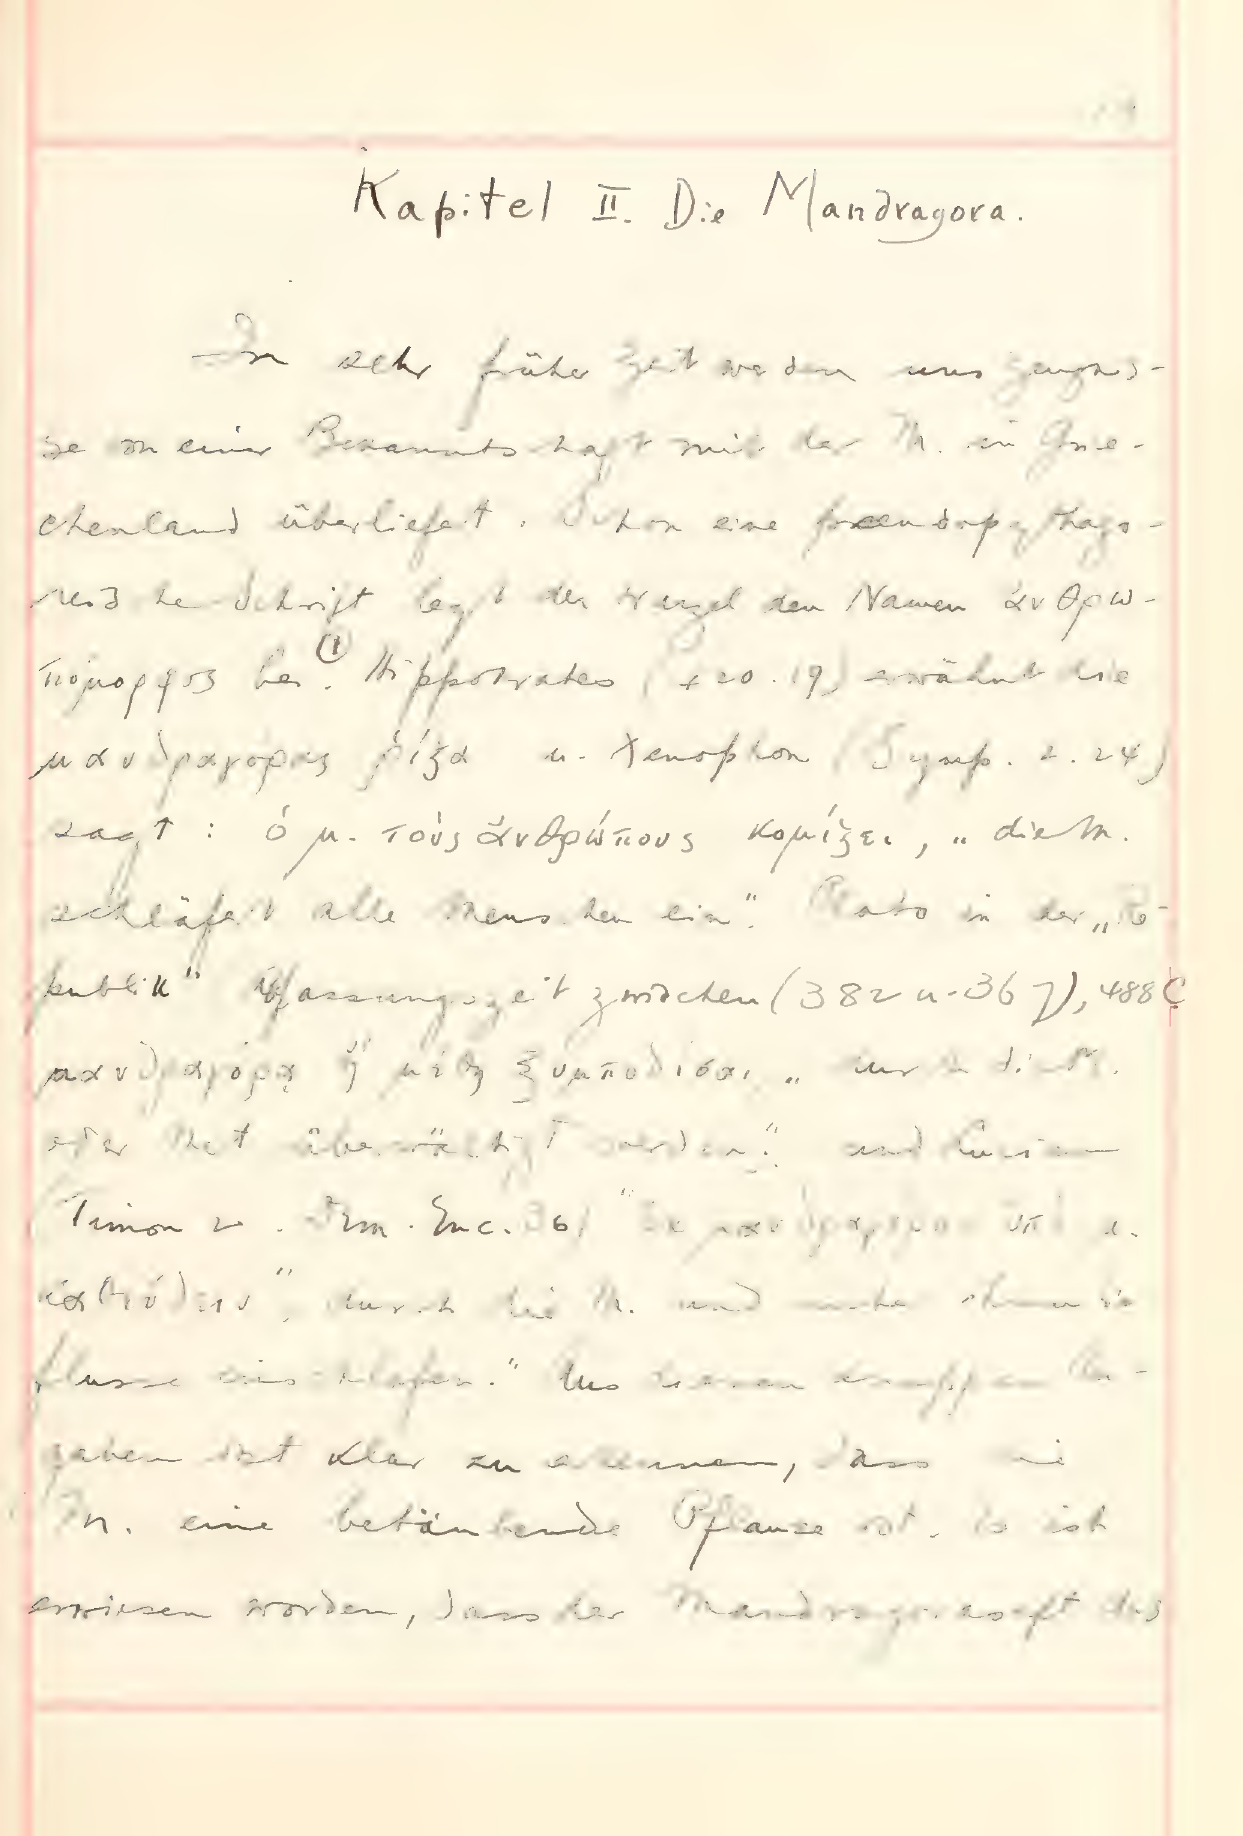 Kapitel II. Die Mandragora.
In sehr früher Zeit werden uns Zeugnis-
se von einer Bekanntschaft mit der M. in Grie-
chenland überliefert. Schon eine pseudopythago-
reische Schrift legt der Wurzel den Namen ἀνθρω-
πόμορφος bei. ① Hippokrates (420.19) erwähnt die
μανδραγόρας ῥίζα u. Xenophon (Symp. 2.24)
sagt: ὁ μ. τοὺς ἀνθρώπους κομίζει, „die M.
schläfert alle Menschen ein". Plato in der „Re-
publik" Abfassungszeit zwischen (382 u. 367), 488 C
μανδραγόρᾳ ἢ μέθῃ ξυμποδίσαι „durch die M.
oder Met überwältigt werden". und Lucian
(Timon 2. Dem. Enc. 36) "
καθεύδειν", durch die M. und unter ihrem Ein
flusse einschlafen." Aus diesen knappen An-
gaben ist klar zu erkennen, dass die
M. eine betäubende Pflanze ist. Es ist
erwiesen worden, dass der Mandragorasaft das